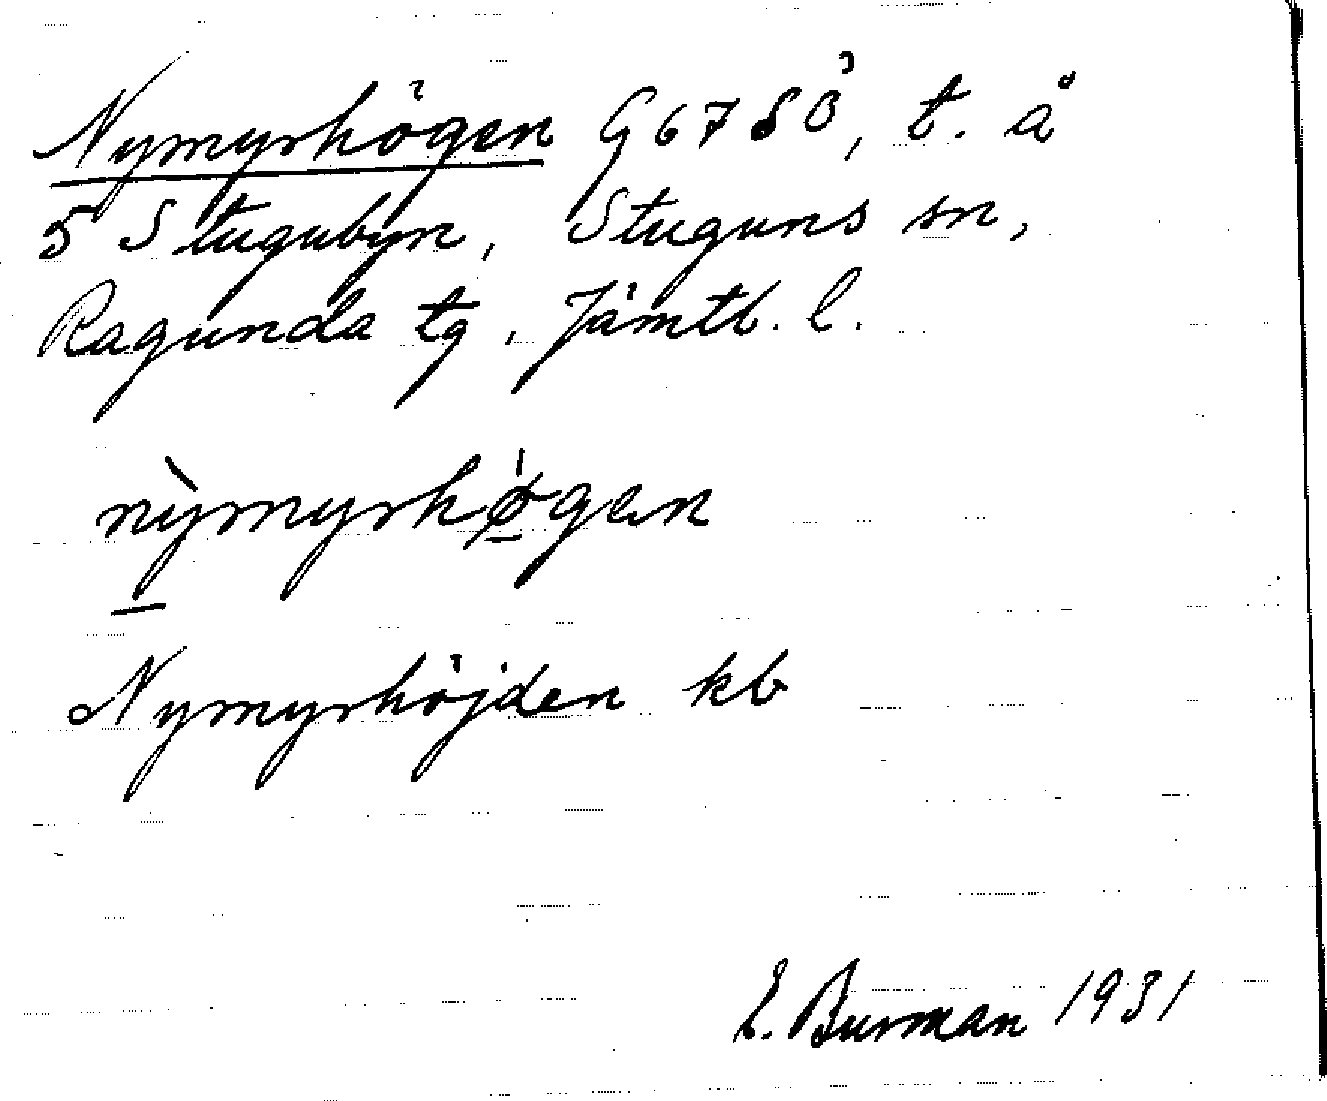 Nymyrhögen G67SÖ, t. å
5 Stugubyn, Stuguns sn,
Ragunda tg, Jämtl. l.
nỳmyrhø̀gen
Nymyrhöjden kb
E. Burman 1931